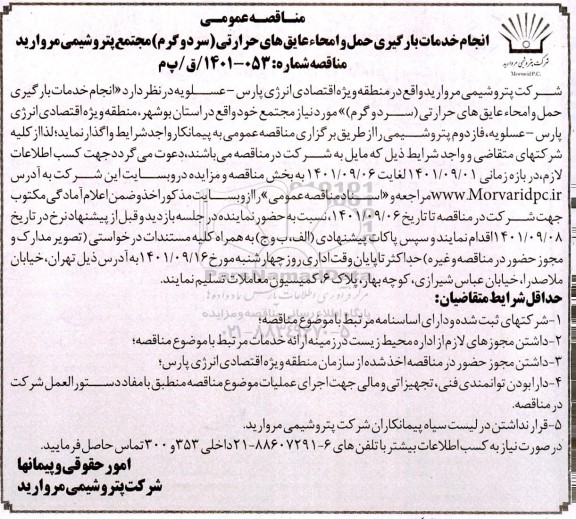 مناقصه عمومی
انجام خدمات بارگیری حمل و امحاء عایق های حرارتی (سرد و گرم) مجتمع پتروشیمی مروارید
مناقصه شماره: ۰۵۳-۱۴۰۱/ق/پ م
شرکت پتروشیمی مروارید
Morvarid P.C.
شرکت پتروشیمی مروارید واقع در منطقه ویژه اقتصادی انرژی پارس - عسلویه در نظر دارد «انجام خدمات بارگیری
حمل و امحاء عایق های حرارتی (سرد و گرم)» مورد نیاز مجتمع خود واقع در استان بوشهر، منطقه ویژه اقتصادی انرژی
پارس - عسلویه، فاز دوم پتروشیمی را از طریق برگزاری مناقصه عمومی به پیمانکار واجد شرایط واگذار نماید؛ لذا از کلیه
شرکتهای متقاضی و واجد شرایط ذیل که مایل به شرکت در مناقصه می باشند، دعوت می گردد جهت کسب اطلاعات
لازم، در بازه زمانی ۱۴۰۱/۰۹/۰۱ لغایت ۱۴۰۱/۰۹/۰۶ به بخش مناقصه و مزایده در وبسایت این شرکت به آدرس
www.Morvaridpc.ir مراجعه و «اسناد مناقصه عمومی» را از وبسایت مذکور اخذ و ضمن اعلام آمادگی مکتوب
جهت شرکت در مناقصه تا تاریخ ۱۴۰۱/۰۹/۰۶، نسبت به حضور نماینده در جلسه بازدید و قبل از پیشنهاد نرخ در تاریخ
۱۴۰۱/۰۹/۰۸ اقدام نمایند و سپس پاکات پیشنهادی (الف، ب و ج) به همراه کلیه مستندات درخواستی (تصویر مدارک و
مجوز حضور در مناقصه و غیره) حداکثر تا پایان وقت اداری روز چهارشنبه مورخ ۱۴۰۱/۰۹/۱۶ به آدرس ذیل تهران، خیابان
ملاصدرا، خیابان عباس شیرازی، کوچه بهار، پلاک ۶، کمیسیون معاملات تسلیم نمایند.
حداقل شرایط متقاضیان:
۱- شرکتهای ثبت شده و دارای اساسنامه مرتبط با موضوع مناقصه؛
۲- داشتن مجوز های لازم از اداره محیط زیست در زمینه ارائه خدمات مرتبط با موضوع مناقصه؛
۳- داشتن مجوز حضور در مناقصه اخذ شده از سازمان منطقه ویژه اقتصادی انرژی پارس؛
۴- دارا بودن توانمندی فنی، تجهیزاتی و مالی جهت اجرای عملیات موضوع مناقصه منطبق با مفاد دستورالعمل شرکت
در مناقصه.
۵- قرار نداشتن در لیست سیاه پیمانکاران شرکت پتروشیمی مروارید.
در صورت نیاز به کسب اطلاعات بیشتر با تلفن های ۶-۸۸۶۰۷۲۹۱-۰۲۱ داخلی ۳۵۳ و ۳۰۰ تماس حاصل فرمایید.
امور حقوقی و پیمانها
شرکت پتروشیمی مروارید